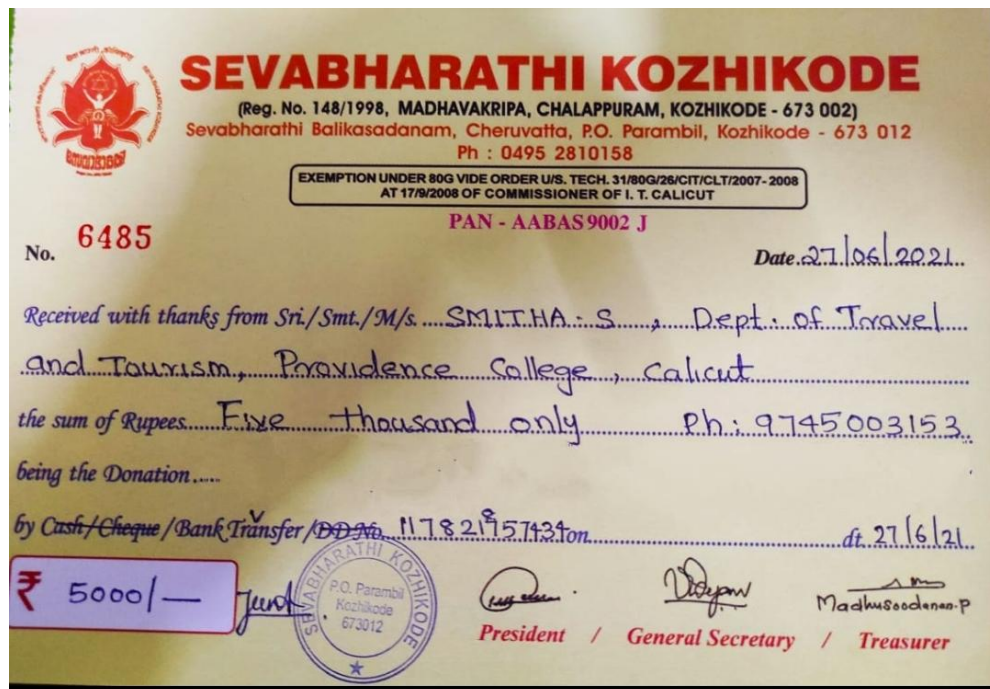 SEVABHARATHI KOZHIKODE
(Reg. No. 148/1998, MADHAVAKRIPA, CHALAPPURAM, KOZHIKODE - 673 002)
Sevabharathi Balikasadanam, Cheruvatta, P.O. Parambil, Kozhikode - 673 012
Ph : 0495 2810158
EXEMPTION UNDER 80G VIDE ORDER U/S. TECH. 31/80G/26/CIT/CLT/2007-2008
AT 17/9/2008 OF COMMISSIONER OF I. T. CALICUT
PAN - AABAS 9002 J
No. 6485
Date 27/06/2021
Received with thanks from Sri./Smt./M/s. SMITHA - S , Dept. of Travel
and Tourism, Providence College, Calicut
the sum of Rupees Five thousand only Ph: 9745003153
being the Donation
by Cash/Cheque/Bank Transfer/DD No. on dt 27/6/21
₹ 5000/—
SEVABHARATHI KOZHIKODE
P.O. Parambil
Kozhikode
673012
Madhusoodanan.P
President / General Secretary / Treasurer